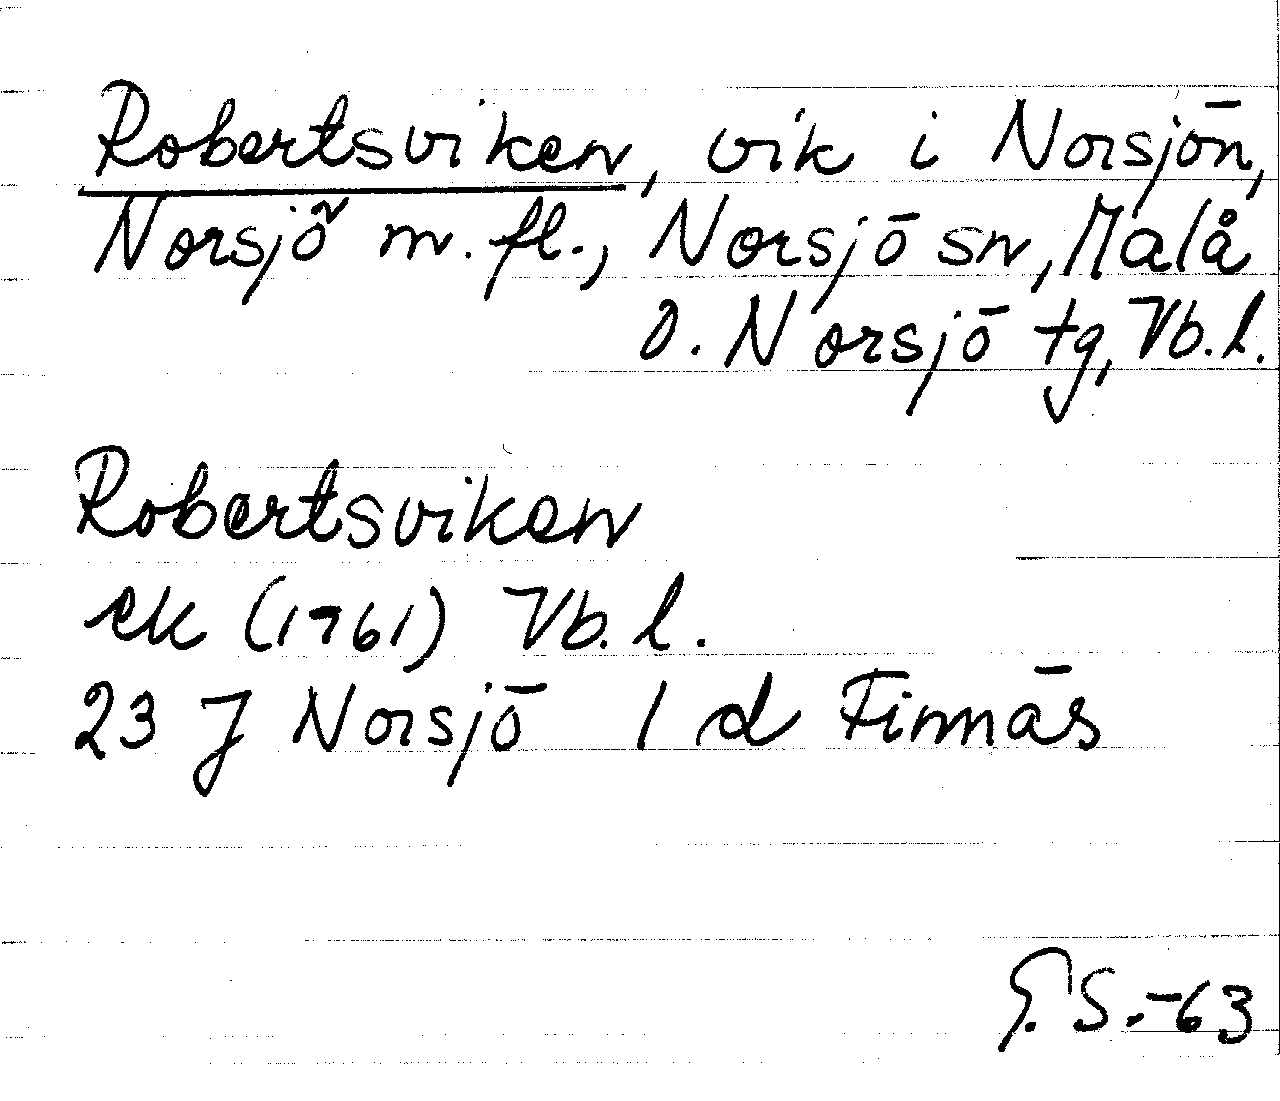 Robertsviken, vik i Norsjön,
Norsjö m. fl., Norsjö sn, Malå
o. Norsjö tg, Vb. l.
Robertsviken
ek (1961) Vb. l.
23 J Norsjö 1 d Finnäs
G. S. -63